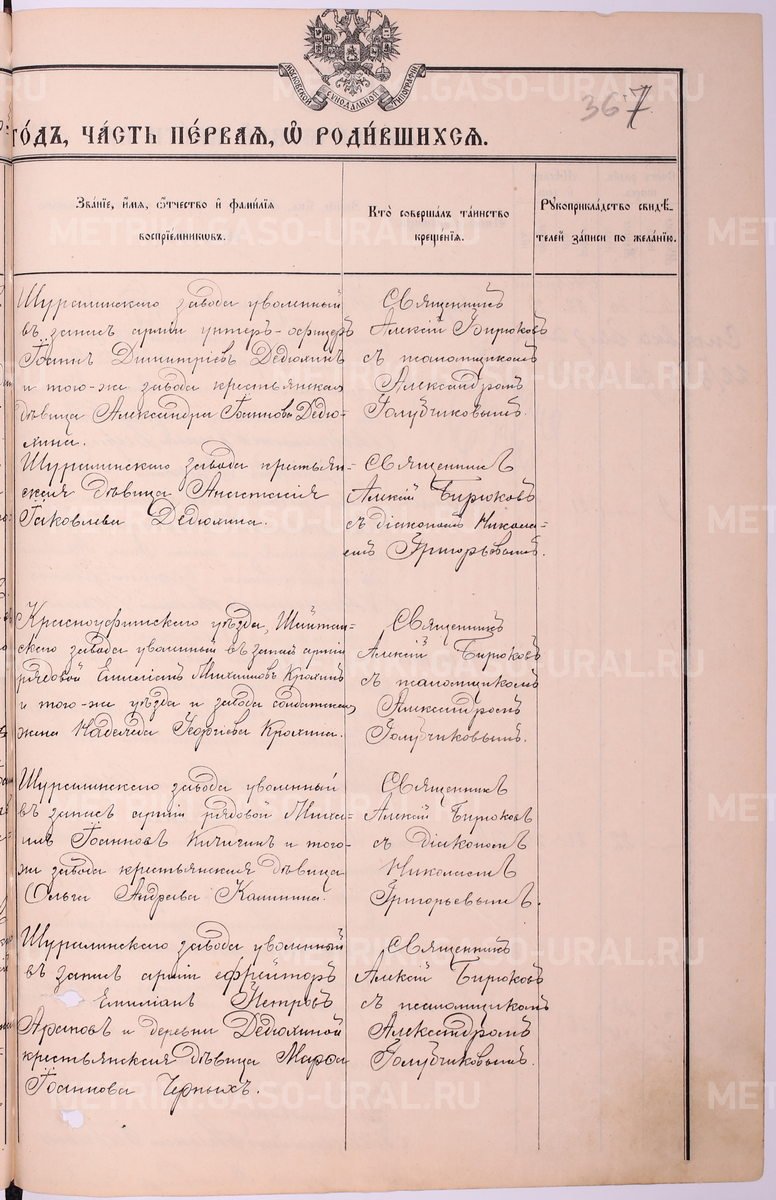 МОСКОВСКОЙ СИНОДАЛЬНОЙ ТИПОГРАФИИ
367
го́дъ, ча́сть пе́рвая, ѡ҆ роди́вшихся.
Зва́нїе, и҆́мя, ѻ҆́тчество и҆ фами́лїя
воспрїе́мникѡвъ.
Кто̀ соверша́лъ та́инство
креще́нїя.
Рꙋкоприкла́дство свидѣ́-
телей за́писи по жела́нїю.
Шуралинскаго завода уволенный
въ запасъ арміи унтеръ-офицеръ
Іоаннъ Димитріевъ Дедюхинъ
и того-же завода крестьянская
дѣвица Александра Іоаннова Дедю-
хина.
Священникъ
Алексій Бирюковъ
съ псаломщикомъ
Александромъ
Голубчиковымъ.
Шуралинскаго завода крестьян-
ская дѣвица Анастасія
Іаковлева Дедюхина.
Священникъ
Алексій Бирюковъ
съ діакономъ Никола-
емъ Григорьевымъ.
Красноуфимскаго уѣзда, Шайтан-
скаго завода уволенный въ запасъ арміи
рядовой Емиліанъ Крохинъ
и того-же уѣзда и завода солдатская
жена Надежда Георгіева Крохина.
Священникъ
Алексій Бирюковъ
съ псаломщикомъ
Александромъ
Голубчиковымъ.
Шуралинскаго завода уволенный
въ запасъ арміи рядовой Миха-
илъ Іоанновъ Кичигинъ и того-
же завода крестьянская дѣвица
Ольга Андреева Калинина.
Священникъ
Алексій Бирюковъ
съ діакономъ
Николаемъ
Григорьевымъ.
Шуралинскаго завода уволенный
въ запасъ арміи ефрейторъ
Емиліанъ Петровъ
Араповъ и деревни Дедюхиной
крестьянская дѣвица Марѳа
Іоаннова Черныхъ.
Священникъ
Алексій Бирюковъ
съ псаломщикомъ
Александромъ
Голубчиковымъ.
METRIKI.GASO-URAL.RU